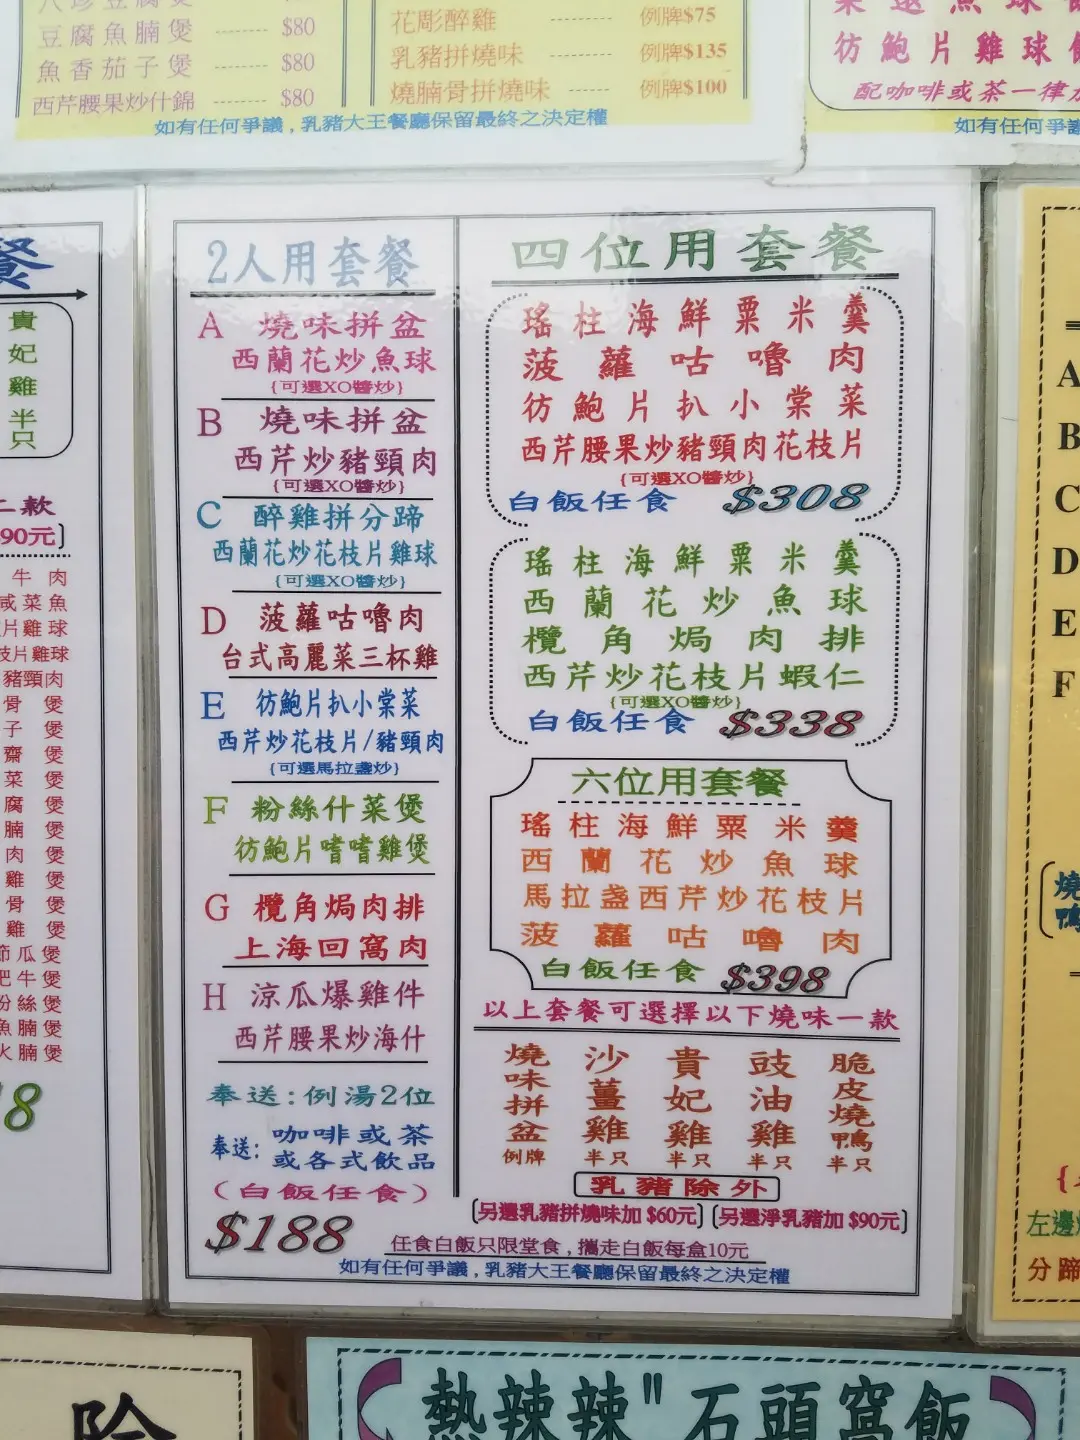 豆腐魚腩煲 ------- $80
魚香茄子煲 ------ $80
西芹腰果炒什錦 ------ $80
花彫醉雞 例牌$75
乳豬拼燒味 例牌$135
燒腩骨拼燒味 例牌$100
如有任何爭議,乳豬大王餐廳保留最終之決定權
彷鮑片雞球
配咖啡或茶一律
如有任何爭議
餐
貴妃雞半只
二款
90元]
牛肉
咸菜魚
片雞球
枝片雞球
豬頸肉
骨煲
子煲
齋煲
菜煲
腐煲
腩煲
肉煲
雞煲
骨煲
雞煲
節瓜煲
肥牛煲
粉絲煲
魚腩煲
火腩煲
8
2人用套餐
A 燒味拼盆
西蘭花炒魚球
{可選XO醬炒}
B 燒味拼盆
西芹炒豬頸肉
{可選XO醬炒}
C 醉雞拼分蹄
西蘭花炒花枝片雞球
{可選XO醬炒}
D 菠蘿咕嚕肉
台式高麗菜三杯雞
E 彷鮑片扒小棠菜
西芹炒花枝片/豬頸肉
{可選馬拉盞炒}
F 粉絲什菜煲
彷鮑片嗜嗜雞煲
G 欖角焗肉排
上海回窩肉
H 涼瓜爆雞件
西芹腰果炒海什
奉送:例湯2位
奉送:咖啡或茶
或各式飲品
(白飯任食)
$188
四位用套餐
瑤柱海鮮粟米羹
菠蘿咕嚕肉
彷鮑片扒小棠菜
西芹腰果炒豬頸肉花枝片
{可選XO醬炒}
白飯任食 $308
瑤柱海鮮粟米羹
西蘭花炒魚球
欖角焗肉排
西芹炒花枝片蝦仁
{可選XO醬炒}
白飯任食 $338
六位用套餐
瑤柱海鮮粟米羹
西蘭花炒魚球
馬拉盞西芹炒花枝片
菠蘿咕嚕肉
白飯任食 $398
以上套餐可選擇以下燒味一款
燒味拼盆例牌
沙薑雞半只
貴妃雞半只
豉油雞半只
脆皮燒鴨半只
乳豬除外
[另選乳豬拼燒味加 $60元] [另選淨乳豬加 $90元]
任食白飯只限堂食,攜走白飯每盒10元
如有任何爭議,乳豬大王餐廳保留最終之決定權
A
B
C
D
E
F
燒
鴨
左邊
分蹄
熱辣辣"石頭窩飯